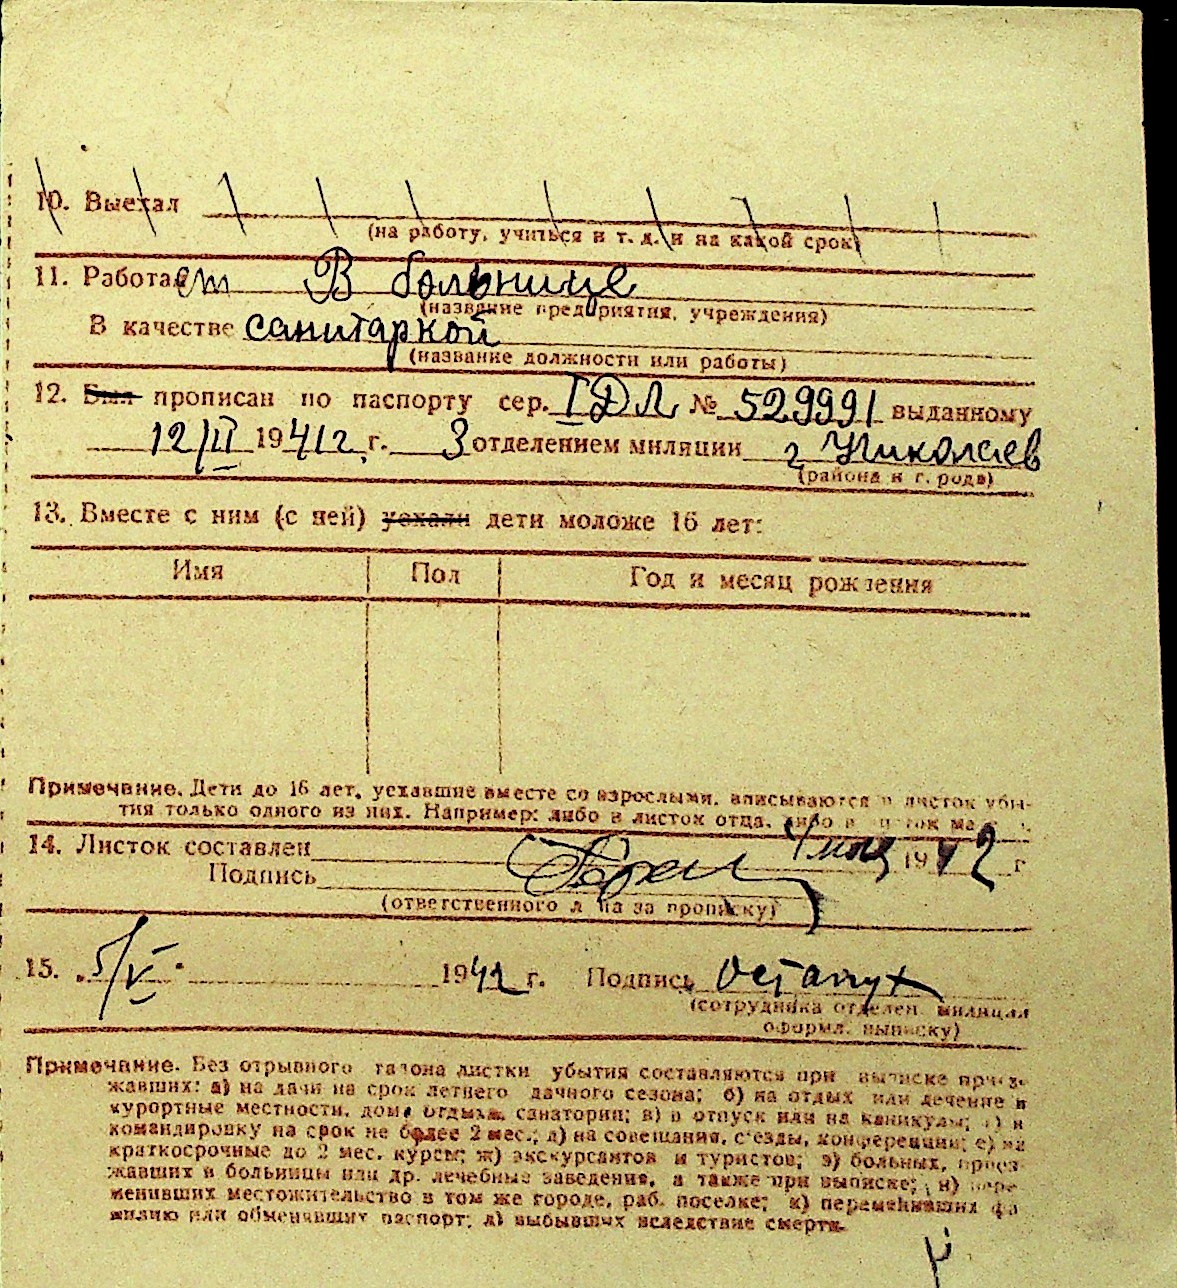 10. Выехал
(на работу, учиться и т. д. и на какой срок)
11. Работает В больнице
(название предприятия, учреждения)
В качестве санитаркой
(название должности или работы)
12. Был прописан по паспорту сер. I ДЛ № 529991 выданному
12/II 1942 г. 3 отделением милиции г. Николаев
(района и города)
13. Вместе с ним (с ней) уехали дети моложе 16 лет:
Имя Пол Год и месяц рождения
Примечание. Дети до 16 лет, уехавшие вместе со взрослыми, вписываются в листок убы-
тия только одного из них. Например: либо в листок отца, либо в листок
14. Листок составлен 4 мая 1942 г
Подпись
(ответственного лица за прописку)
15. „5/V" 1942 г. Подпись
(сотрудника отделен. милиции
оформл. выписку)
Примечание. Без отрывного талона листки убытия составляются при выписке приез-
жавших: а) на дачи на срок летнего дачного сезона; б) на отдых или лечение в
курортные местности, дома отдыха, санатории; в) в отпуск или на каникулы; г) в
командировку на срок не более 2 мес.; д) на совещания, съезды, конференции; е) на
краткосрочные до 2 мес. курсы; ж) экскурсантов и туристов; з) больных, приез-
жавших в больницы или др. лечебные заведения, а также при выписке; и) пере-
менивших местожительство в том же городе, раб. поселке; к) переменивших фа
милию или обменявших паспорт; л) выбывших вследствие смерти.